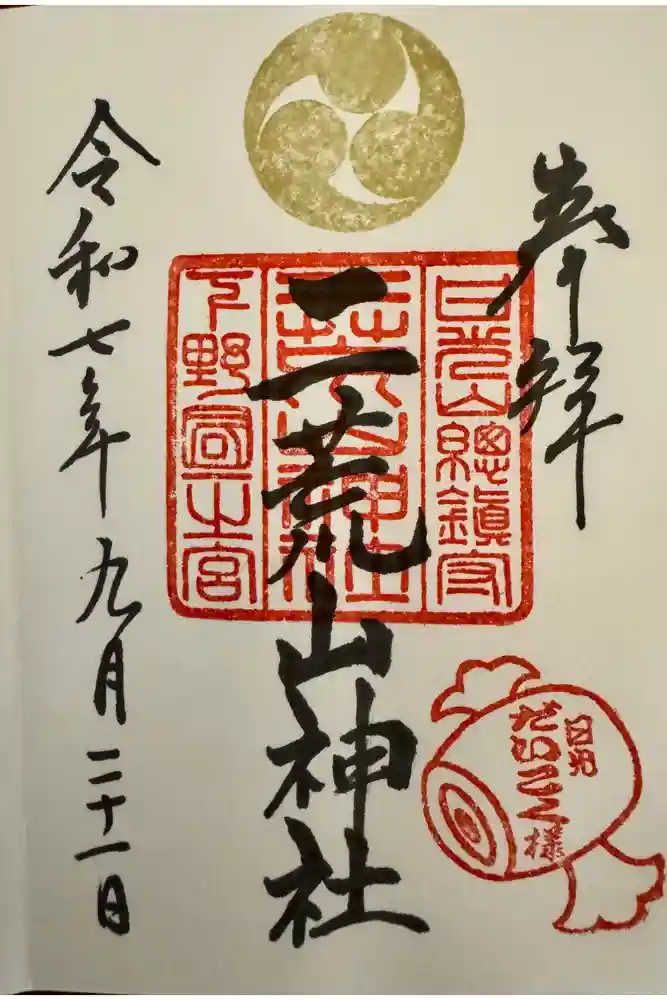 奉拝
日光山総鎮守
二荒山神社
二荒山神社
下野国一之宮
令和七年九月二十一日
日光
だいこく様